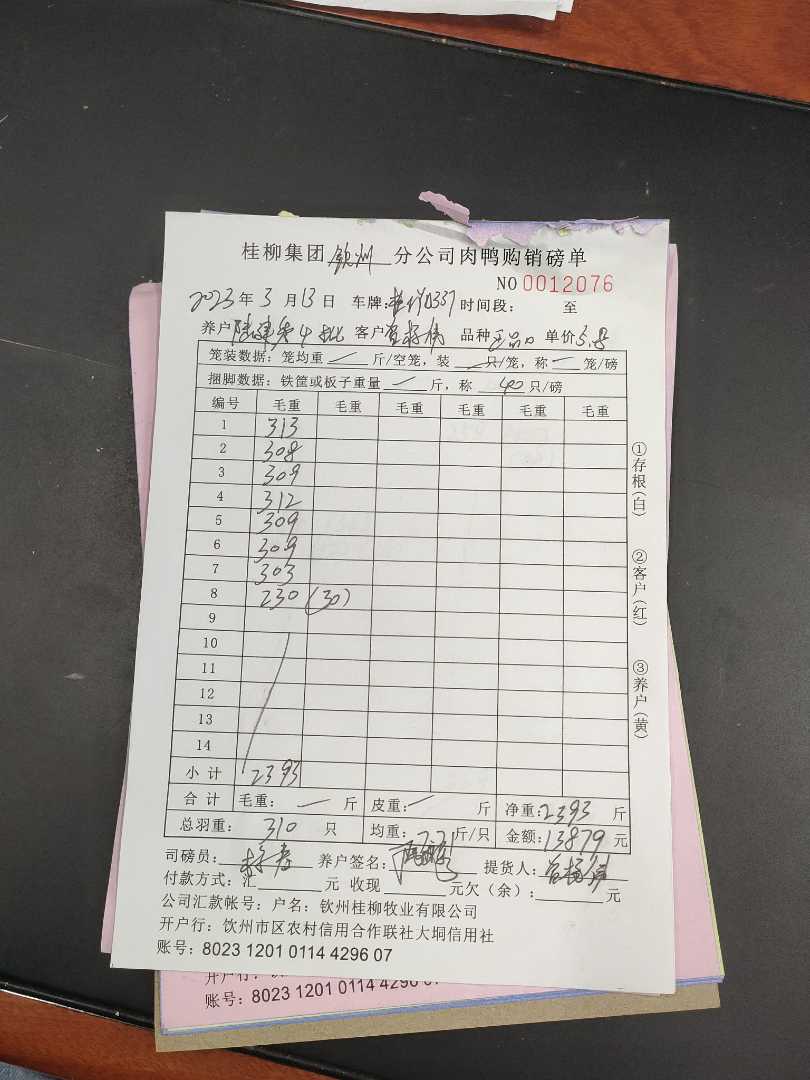 桂柳集团 钦州 分公司肉鸭购销磅单
NO 0012076
2023年3月13日 车牌: 时间段: 至
养户 4批 客户 品种 单价5.8
笼装数据: 笼均重 — 斤/空笼, 装 — 只/笼, 称 — 笼/磅
捆脚数据: 铁筐或板子重量 — 斤, 称 40 只/磅
编号 毛重 毛重 毛重 毛重 毛重 毛重
1 313
2 308
3 309
4 312
5 309
6 309
7 303
8 230 (30)
9
10
11
12
13
14
小计 2393
合计 毛重: — 斤 皮重: — 斤 净重: 2393 斤
总羽重: 310 只 均重: 7.71 斤/只 金额: 13879 元
司磅员: 养户签名: 提货人:
付款方式: 汇 元 收现 元欠(余): 元
公司汇款帐号: 户名: 钦州桂柳牧业有限公司
开户行: 钦州市区农村信用合作联社大垌信用社
账号: 8023 1201 0114 4296 07
①存根(白)
②客户(红)
③养户(黄)
开户行:
账号: 8023 1201 0114 4296 07